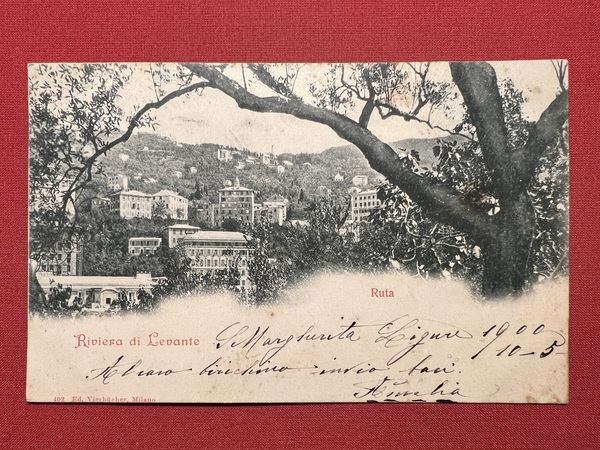 Ruta
Riviera di Levante
S. Margherita Ligure 1900
10-5
Al caro birichino invio baci.
Amelia
402 Ed. Vierbücher, Milano